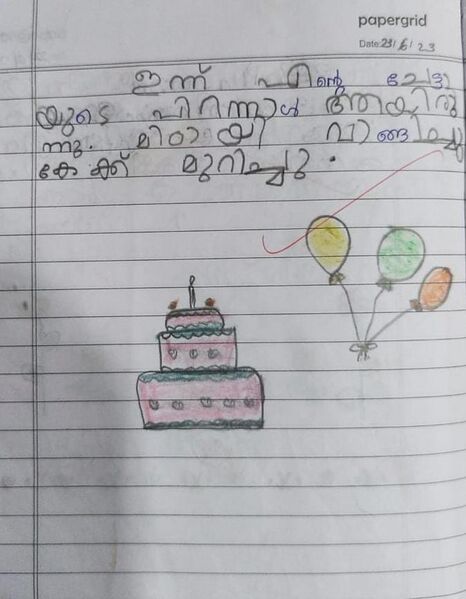 papergrid
Date: 23/6/23
ഇന്ന് എന്റെ ചേട്ടാ
യുടെ പിറന്നാൾ ആയിരു
ന്നു. മിഠായി വാങ്ങിച്ചു
കേക്ക് മുറിച്ചു.